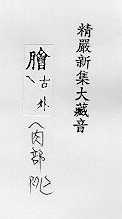 精嚴新集大藏音
膾
古外
肉部